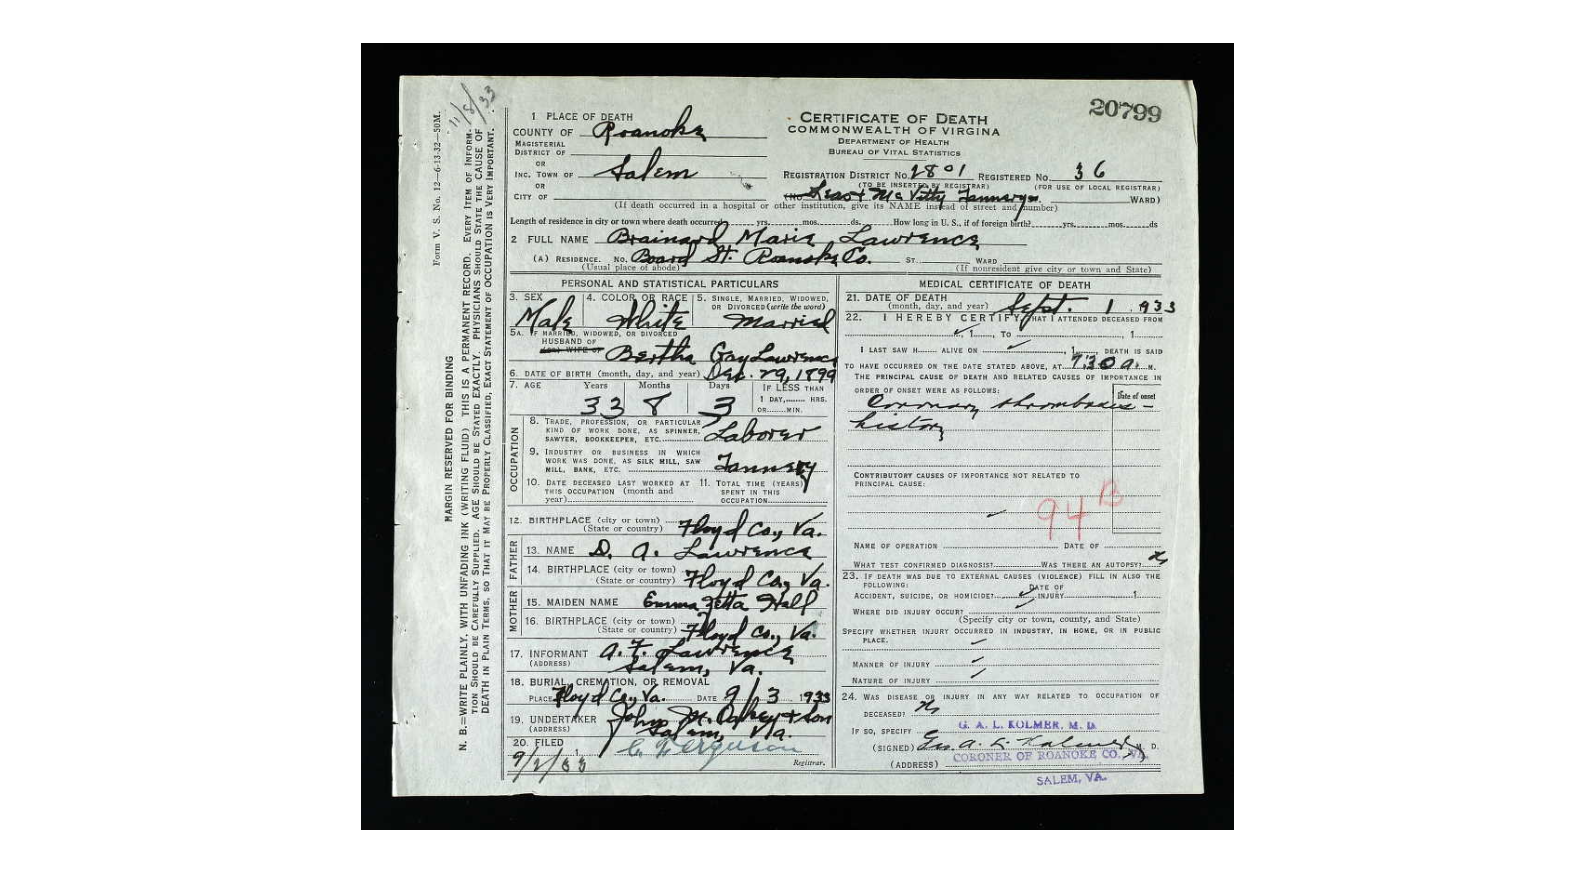 11/8/33
Form V. S. No. 12—6-13-32—50M.
MARGIN RESERVED FOR BINDING
N. B.—WRITE PLAINLY, WITH UNFADING INK (WRITING FLUID) THIS IS A PERMANENT RECORD. EVERY ITEM OF INFORM-
TION SHOULD BE CAREFULLY SUPPLIED. AGE SHOULD BE STATED EXACTLY. PHYSICIANS SHOULD STATE THE CAUSE OF
DEATH IN PLAIN TERMS, SO THAT IT MAY BE PROPERLY CLASSIFIED. EXACT STATEMENT OF OCCUPATION IS VERY IMPORTANT.
20799
CERTIFICATE OF DEATH
COMMONWEALTH OF VIRGINIA
DEPARTMENT OF HEALTH
BUREAU OF VITAL STATISTICS
1 PLACE OF DEATH
COUNTY OF Roanoke
MAGISTERIAL
DISTRICT OF
OR
INC. TOWN OF Salem
OR
CITY OF
REGISTRATION DISTRICT NO. 2801 REGISTERED NO. 36
(TO BE INSERTED BY REGISTRAR) (FOR USE OF LOCAL REGISTRAR)
(No. Leas & McVitty Tannery WARD)
(If death occurred in a hospital or other institution, give its NAME instead of street and number)
Length of residence in city or town where death occurred yrs. mos. ds. How long is U. S., if of foreign birth? yrs. mos. ds
2 FULL NAME Brainard Marie Lawrence
(A) RESIDENCE. NO. Board St. Roanoke Co. ST. WARD
(Usual place of abode) (If nonresident give city or town and State)
PERSONAL AND STATISTICAL PARTICULARS
3. SEX 4. COLOR OR RACE 5. SINGLE, MARRIED, WIDOWED,
OR DIVORCED (write the word)
Male White Married
5A. IF MARRIED, WIDOWED, OR DIVORCED
HUSBAND OF
(OR) WIFE OF Bertha Gay Lawrence
6. DATE OF BIRTH (month, day, and year) Dec. 29, 1899
7. AGE Years Months Days IF LESS THAN
1 DAY, HRS.
OR MIN.
33 8 3
OCCUPATION
8. TRADE, PROFESSION, OR PARTICULAR
KIND OF WORK DONE, AS SPINNER,
SAWYER, BOOKKEEPER, ETC. Laborer
9. INDUSTRY OR BUSINESS IN WHICH
WORK WAS DONE, AS SILK MILL, SAW
MILL, BANK, ETC. Tannery
10. DATE DECEASED LAST WORKED AT
THIS OCCUPATION (month and
year)
11. TOTAL TIME (YEARS)
SPENT IN THIS
OCCUPATION
12. BIRTHPLACE (city or town)
(State or country) Floyd Co., Va.
FATHER
13. NAME D. A. Lawrence
14. BIRTHPLACE (city or town)
(State or country) Floyd Co., Va.
MOTHER
15. MAIDEN NAME Emma Zetta Hall
16. BIRTHPLACE (city or town)
(State or country) Floyd Co., Va.
17. INFORMANT A. F. Lawrence
(ADDRESS) Salem, Va.
18. BURIAL, CREMATION, OR REMOVAL
PLACE Floyd Co., Va. DATE 9/3 1933
19. UNDERTAKER John M. Oakey & Son
(ADDRESS) Salem, Va.
20. FILED
9/2/33 C. Ferguson
Registrar.
MEDICAL CERTIFICATE OF DEATH
21. DATE OF DEATH
(month, day, and year) Sept. 1 1933
22. I HEREBY CERTIFY, THAT I ATTENDED DECEASED FROM
, 1 , TO , 1
I LAST SAW H ALIVE ON , 1 DEATH IS SAID
TO HAVE OCCURRED ON THE DATE STATED ABOVE, AT 7:30 a. M.
THE PRINCIPAL CAUSE OF DEATH AND RELATED CAUSES OF IMPORTANCE IN
ORDER OF ONSET WERE AS FOLLOWS:
Date of onset
Coronary thrombosis -
history
CONTRIBUTORY CAUSES OF IMPORTANCE NOT RELATED TO
PRINCIPAL CAUSE:
94 B
NAME OF OPERATION DATE OF
WHAT TEST CONFIRMED DIAGNOSIS? WAS THERE AN AUTOPSY? No
23. IF DEATH WAS DUE TO EXTERNAL CAUSES (VIOLENCE) FILL IN ALSO THE
FOLLOWING:
DATE OF
ACCIDENT, SUICIDE, OR HOMICIDE? INJURY 1
WHERE DID INJURY OCCUR?
(Specify city or town, county, and State)
SPECIFY WHETHER INJURY OCCURRED IN INDUSTRY, IN HOME, OR IN PUBLIC
PLACE.
MANNER OF INJURY
NATURE OF INJURY
24. WAS DISEASE OR INJURY IN ANY WAY RELATED TO OCCUPATION OF
DECEASED? No
G. A. L. KOLMER, M. D.
IF SO, SPECIFY
(SIGNED) Geo. A. L. Kolmer M. D.
CORONER OF ROANOKE CO., VA
(ADDRESS)
SALEM, VA.